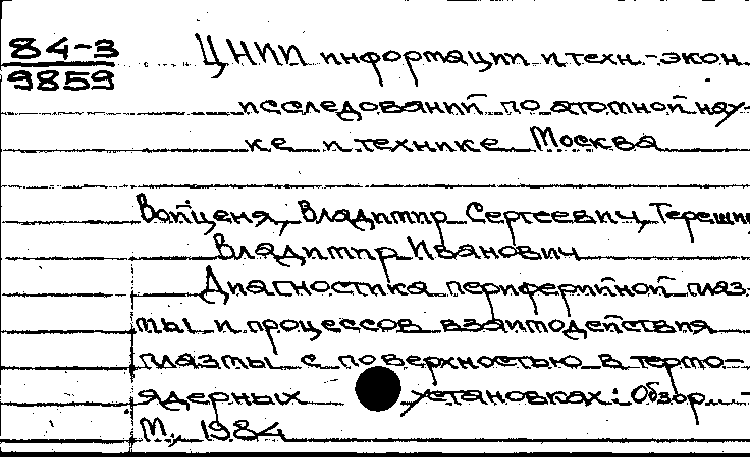 84-3
9859
ЦНИИ информации и техн.-экон.
исследований по атомной нау-
ке и технике. Москва
Войценя, Владимир Сергеевич, Терешин,
Владимир Иванович
Диагностика периферийной плаз-
мы и процессов взаимодействия
плазмы с поверхностью в термо-
ядерных установках: Обзор... -
М., 1984